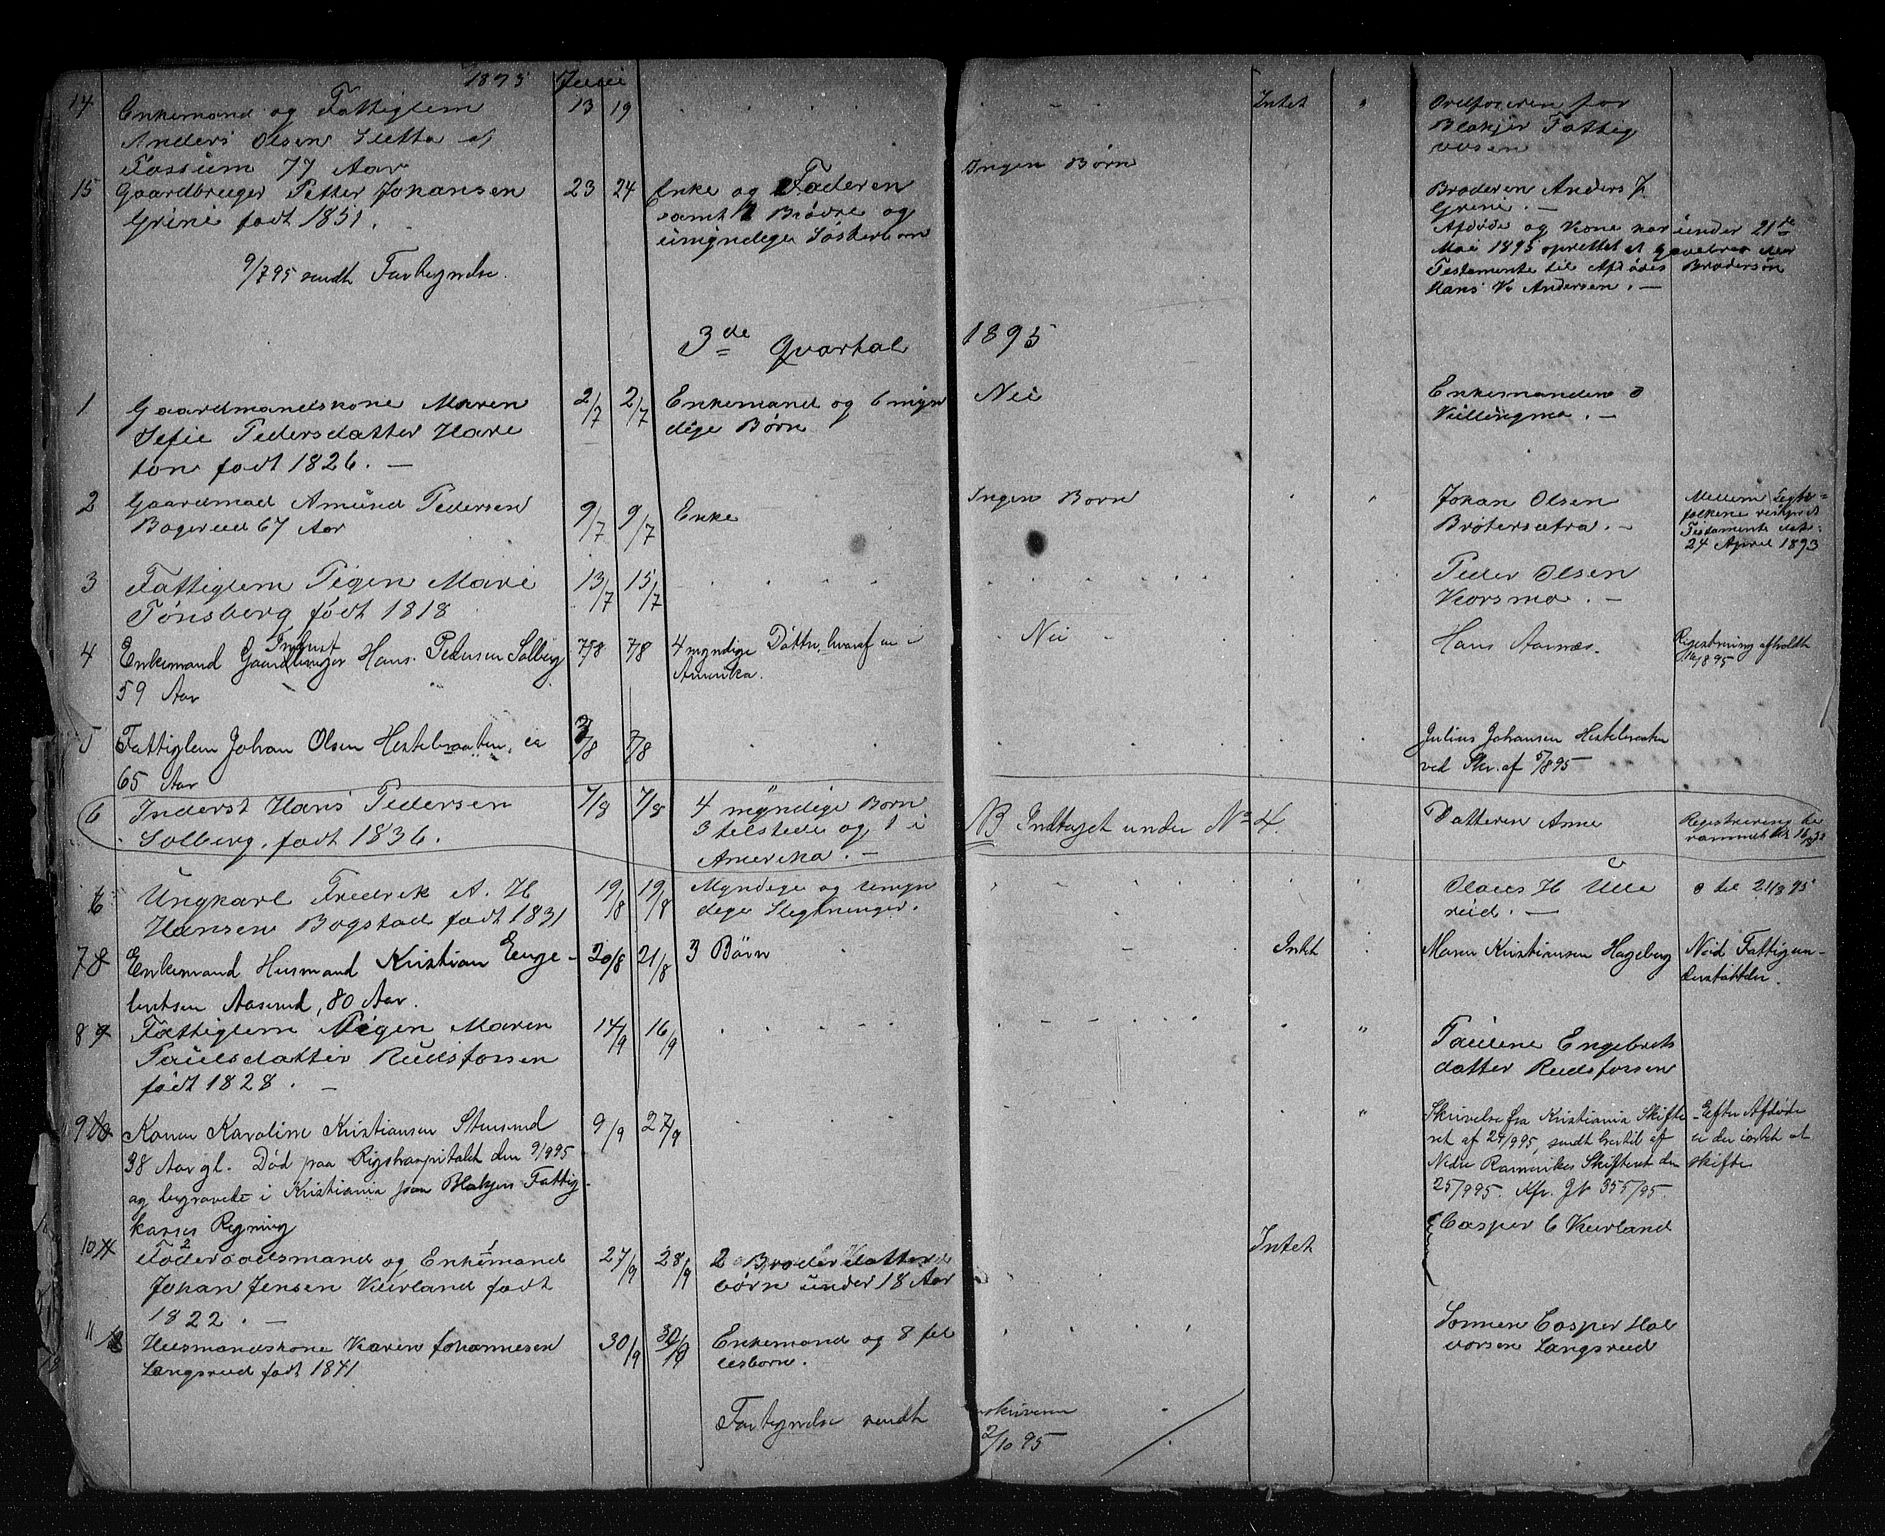 1895 Juni
14 Enkemand og Fattiglem 13 19 Intet " Ordføreren for
Anders Olsen Sletta af Blakjer Fattig
Fossum 77 Aar Ingen Børn væsen
15 Gaardbruger Petter Johansen 23 24 Enke og Faderen Broderen Anders J.
Grini født 1851. samt Brødre og Grini. —
umyndige Søsterbørn Afdøde og Kone har under 21de
Mai 1895 oprettet et Gavebrev eller
9/7 95 sendt Fortegnelse. Testamente til Afdødes Brodersøn
Hans K. Andersen. —
3de Qvartal 1895
1 Gaardmandskone Maren 2/7 2/7 Enkemand og 6 myn Nei Enkemanden
Sefie Pedersdatter Hare dige Børn Kullingmo. —
ton født 1826. —
2 Gaardmad Amund Pedersen 9/7 9/7 Enke Ingen Børn Johan Olsen MellemÆgte=
Bogerud 67 Aar Brøtersætra. — folkene
Testamente dat.
24 April 1893
3 Fattiglem Pigen Mari 13/7 15/7 Peder Olsen
Tønsberg født 1818 Korsmo. —
4 Enkemand Inderst Gaardbruger Hans Pedersen Solberg 7/8 7/8 4 myndige Døttre, hvoraf en i Nei Hans Aarnæs. Registrering afholdt
59 Aar Amerika. 16/8 95
5 Fattiglem Johan Olsen Hestebraaten, ca 3/8 7/8 Julius Johansen Hestebraaten
65 Aar ved Skr. af 5/8 95
6 Inderst Hans Pedersen 7/8 7/8 4 myndige Børn NB Indtaget under No 4. Datteren Anne Registrering be
Solberg, født 1836. 3 telstede og 1 i rammet
Amerika. —
6 Ungkarl Fredrik A. H 19/8 19/8 Myndige og umyn Olaus H Ulle
Hansen Bogstad født 1831 dige Slegtninger. rud. —
7 8 Enkemand Husmand Kristian Enge- 20/8 21/8 3 Børn Intet Maren Kristiansen Hageberg Nød Fattigun-
bretsen Aaserud, 80 Aar. derstøttelse.
8 9 Fattiglem Pigen Maren 14/9 16/9 " Pauline Engebrets
Paulsdatter Rudsforsen datter Rudsforsen
født 1828. —
9 10 Konen Karoline Kristiansen Stensrud 9/9 27/9 " Skrivelse fra Kristiania Skifte- Efter Afdøde
38 Aar gl. Død paa Rigshospitalet den 9/9 95 ret af 24/9 95, sendt hertil af er der intet at
og begravet i Kristiania paa Blakjers Fattig- Nedre Romerikes Skifteret den skifte
kasses Regning 25/9 95. Kfr. JN 355/95.
10 11 Føderaadsmand og Enkemand 27/9 28/9 2 Broder Datter Intet Casper C Kurland
Johan Jensen Kurland født børn under 18 Aar
1822. —
11 12 Husmandskone Karen Johannesen 30/9 30/9 Enkemand og 8 fel Sønnen Casper Hal
Langsrud født 1841 lesbørn. vorsen Langsrud
Fortegnelse sendt Sorenskriveren
2/10 95